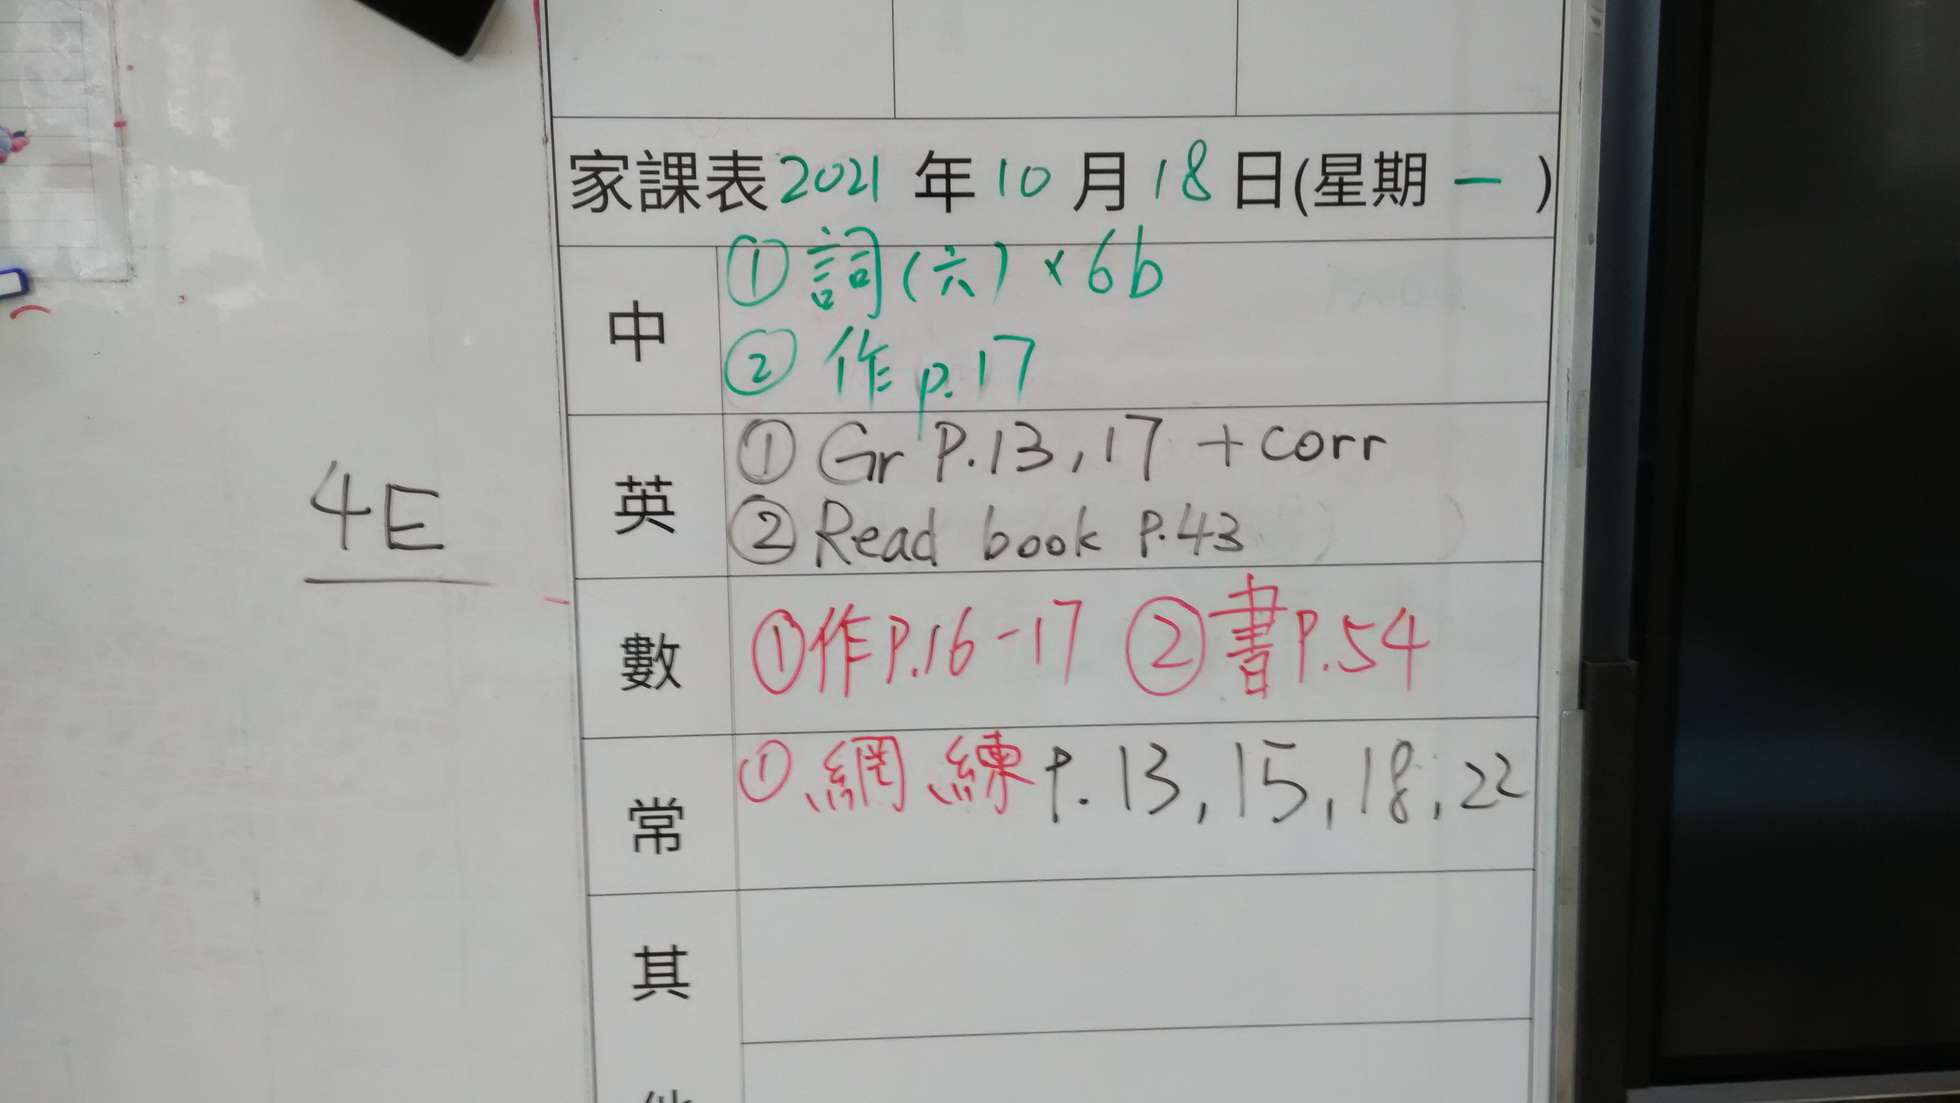 家課表2021年10月18日(星期一)
中
①詞(六)×6b
②作p.17
英
①Gr P.13,17 +corr
②Read book P.43
數
①作P.16-17 ②書P.54
常
①網練P.13,15,18,22
其
他
4E